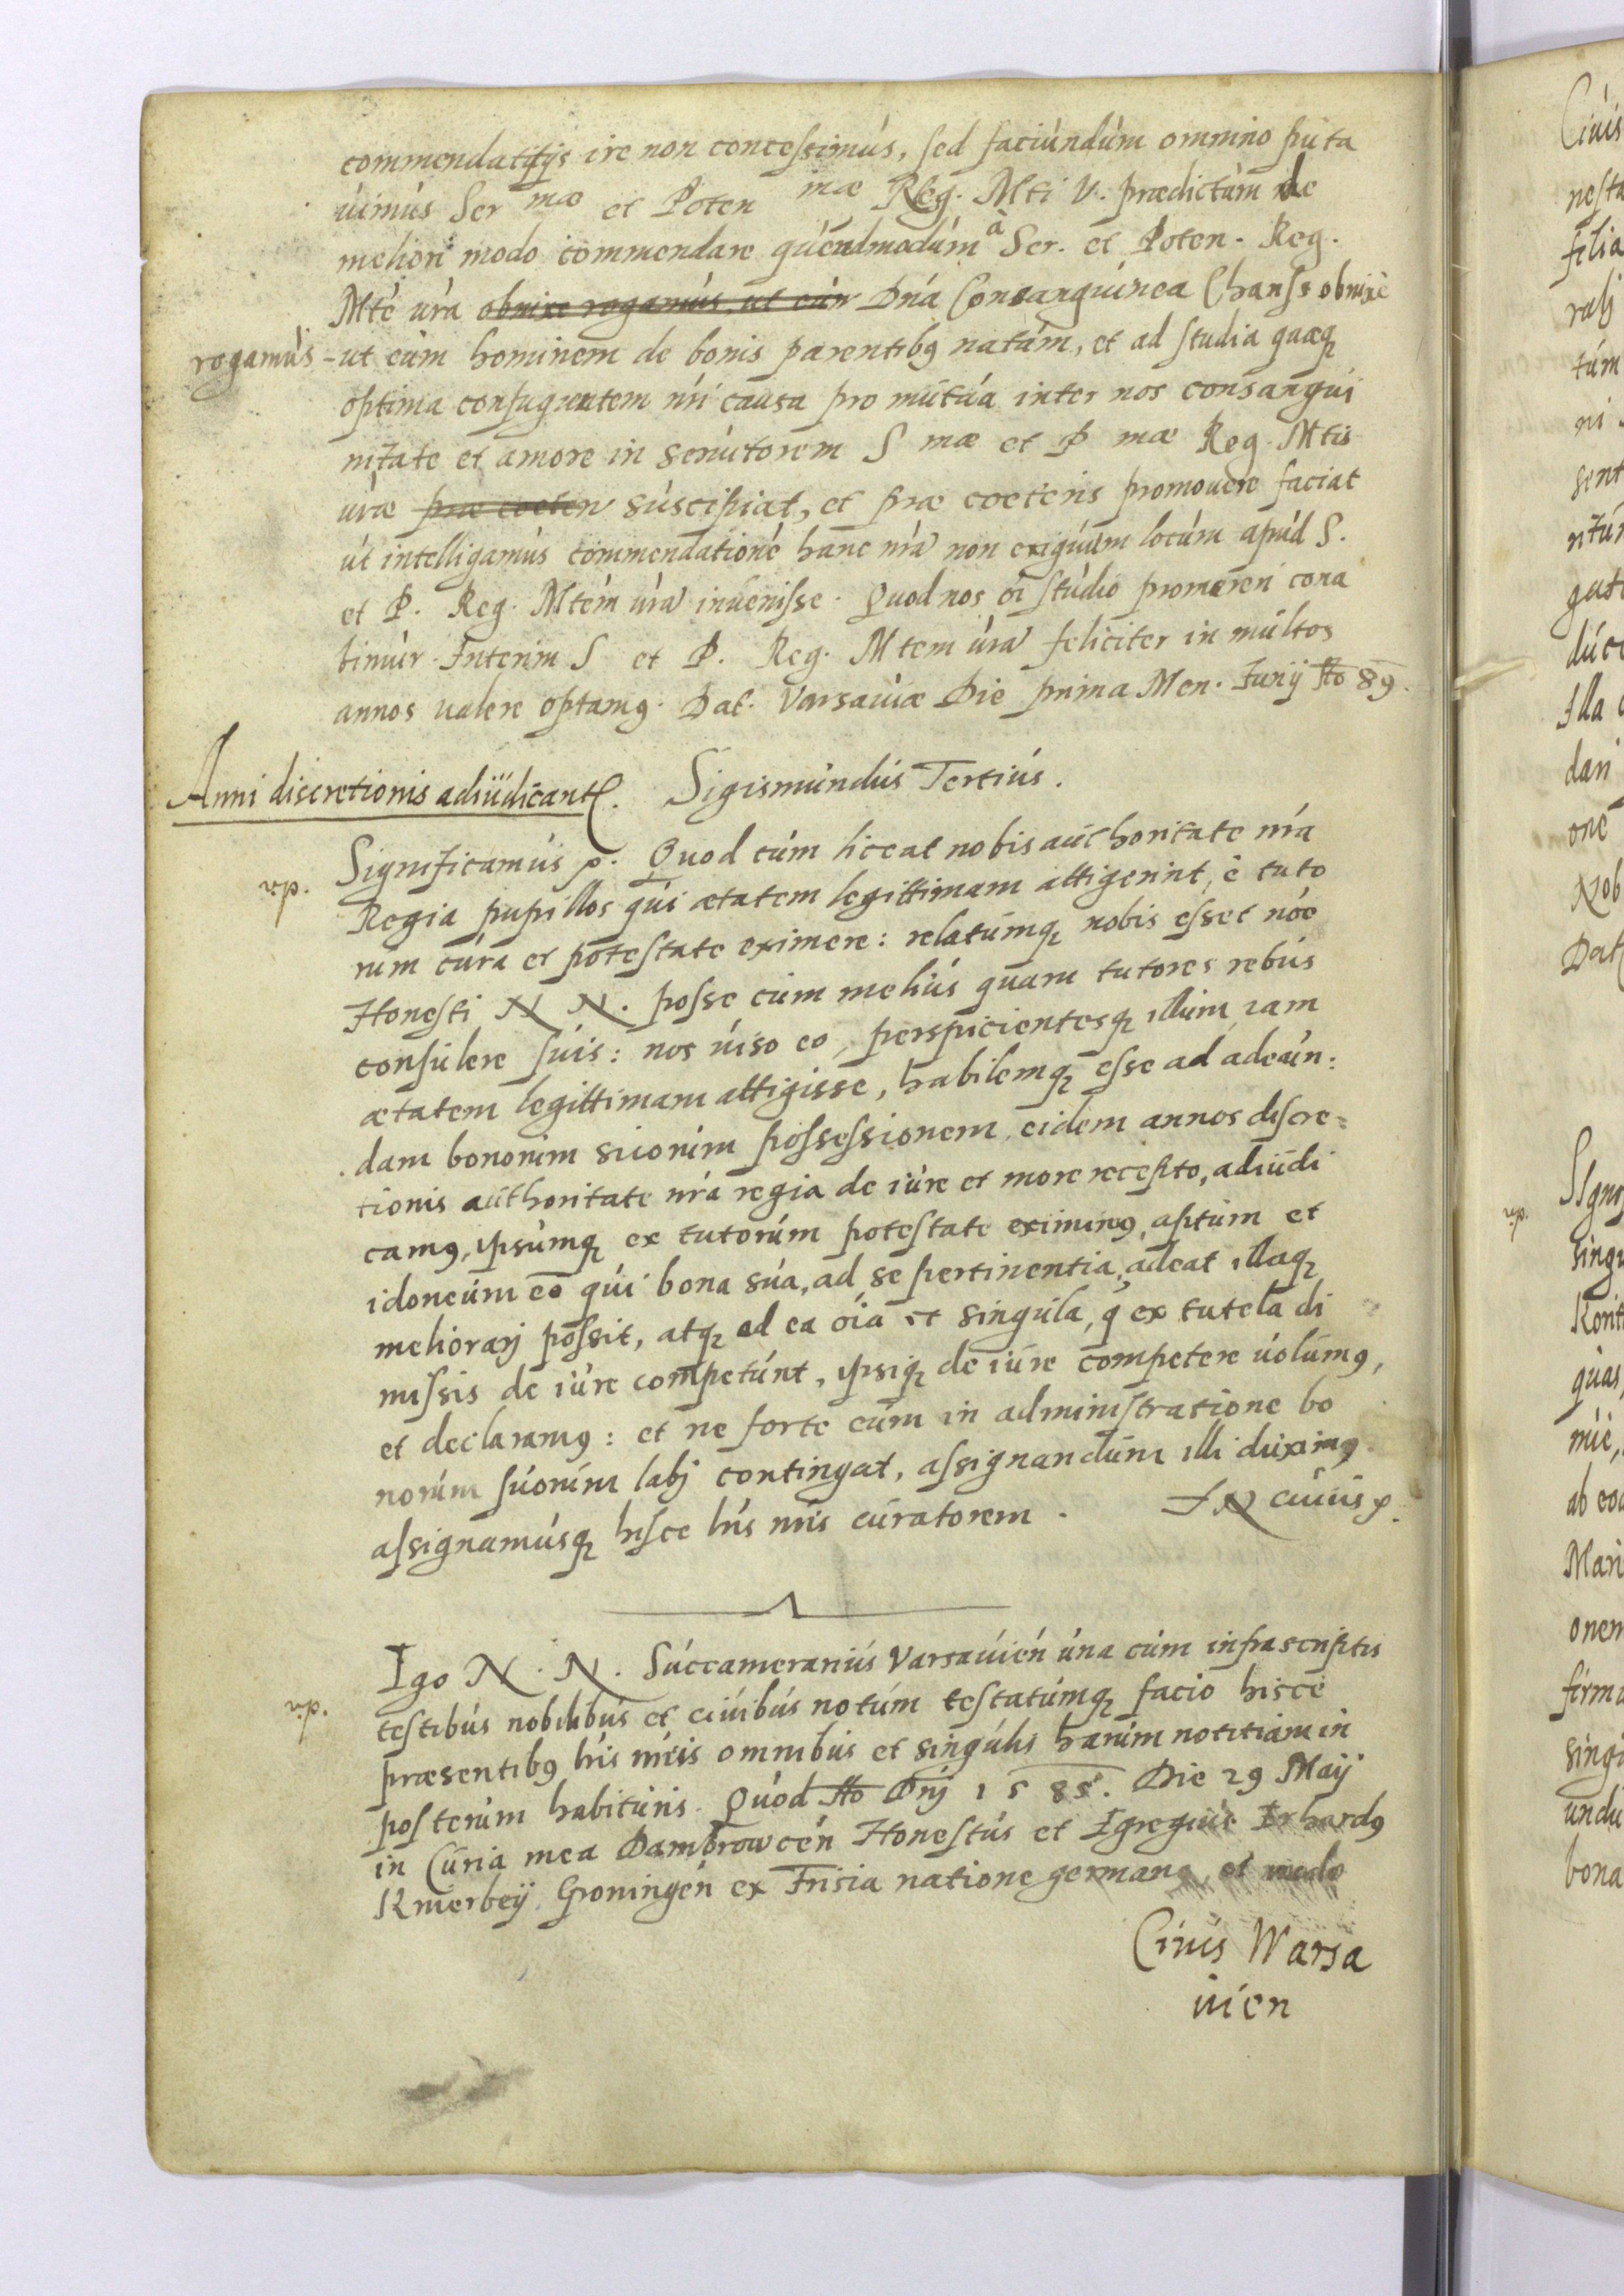 commendatitijs ire non concessimus, sed faciundum omnino puta
uimus Ser mæ et Poten mæ Reg. Mti V. prædictum de
meliori modo commendare quendmodum à Ser. et Poten. Reg.
Mte ura obnixe rogamus, ut eun Dna Consanguinea Chariss obnixe
rogamus - ut eum hominem de bonis parentibꝰ natum, et ad studia quæqꝫ
optima confugientem nri causa pro mutua inter nos consangui
nitate et amore in seruitorem S mæ et P mæ Reg. Mtis
uræ præ coeter suscipiat, et præ coeteris promouere faciat
ut intelligamus commendatione hanc nra non exiguum locum apud S.
et P. Reg. Mtem ura inuenisse. Quod nos oi studio promereri cona
bimur. Interim S et P. Reg. Mtem ura feliciter in multos
annos ualere optamꝰ. Dat. Varsauiæ Die prima Men. Junij Ao 89.
Anni discretionis adiudicantur. Sigismundus Tertius.
rp. Significamus p. Quod cum liceat nobis authoritate nra
Regia pupillos qui ætatem legittimam attigerint, è tuto
rum cura et potestate eximere: relatumqꝫ nobis esset noe
Honesti N N. posse eum melius quam tutores rebus
consulere suis: nos uiso eo, perspicientesqꝫ illum iam
ætatem legittimam attigisse, habilemqꝫ esse ad adeun:
dam bonorum suorum possessionem, eidem annos discre=
tionis authoritate nra regia de iure et more recepto, adiudi
camꝰ, ipsumqꝫ ex tutorum potestate eximimꝰ, aptum et
idoneum eo qui bona sua, ad se pertinentia, adeat illaqꝫ
meliorarj possit, atqꝫ ad ea oia et singula, q ex tutela di
missis de iure competunt, ipsiqꝫ de iure competere uolumꝰ,
et declaramꝰ: et ne forte eum in administratione bo
norum suorum labj contingat, assignandum illi duximꝰ
assignamusqꝫ hisce lris nris curatorem. I N cuius p.
Ego N. N. Succamerarius Varsauien una cum infrascriptis
rp. testibus nobilibus et ciuibus notum testatumqꝫ facio hisce
præsentibꝰ lris meis omnibus et singulis harum notitiam in
posterum habituris. Quod Ao Dnj 1585. Die 29 Maij
in Curia mea Dambrowcen Honestus et Egregius Erhardꝰ
Knierbeij Groningen ex Frisia natione germana, et modo
Ciuis Warsa
uien